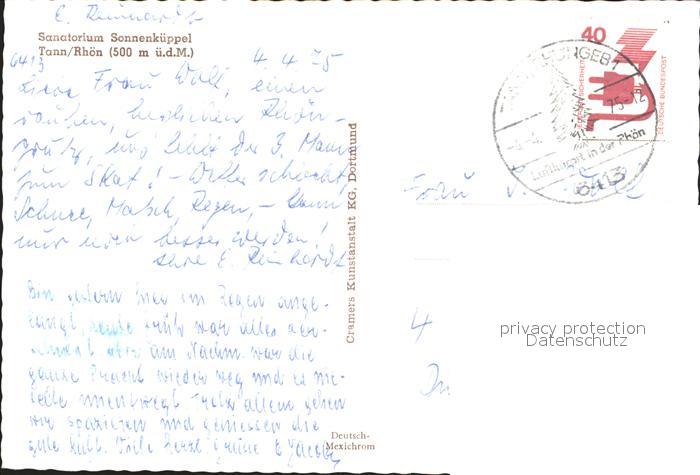 E. Reinhardt
Sanatorium Sonnenküppel
Tann/Rhön (500 m ü.d.M.)
6413
4.4.75
Liebe Frau Wolf, einen
rauhen, herzlichen Rhön-
gruß, uns fehlt der 3. Mann
zum Skat! – Wetter schlecht,
Schnee, Matsch, Regen, – kann
nur noch besser werden!
Ihre E. Reinhardt
Bin gestern hier im Regen ange-
langt, heute früh war alles ver-
schneit aber am Nachm. war die
ganze Pracht wieder weg und es nie-
selte unentwegt. Trotz allem gehen
wir spazieren und geniessen die
gute Luft. Viele herzl. Grüße E. Jacobs
Cramers Kunstanstalt KG. Dortmund
Deutsch-
Mexichrom
40
DEUTSCHE BUNDESPOST
75-12
Luftkurort in der Rhön
6413
Frau
4
privacy protection
Datenschutz